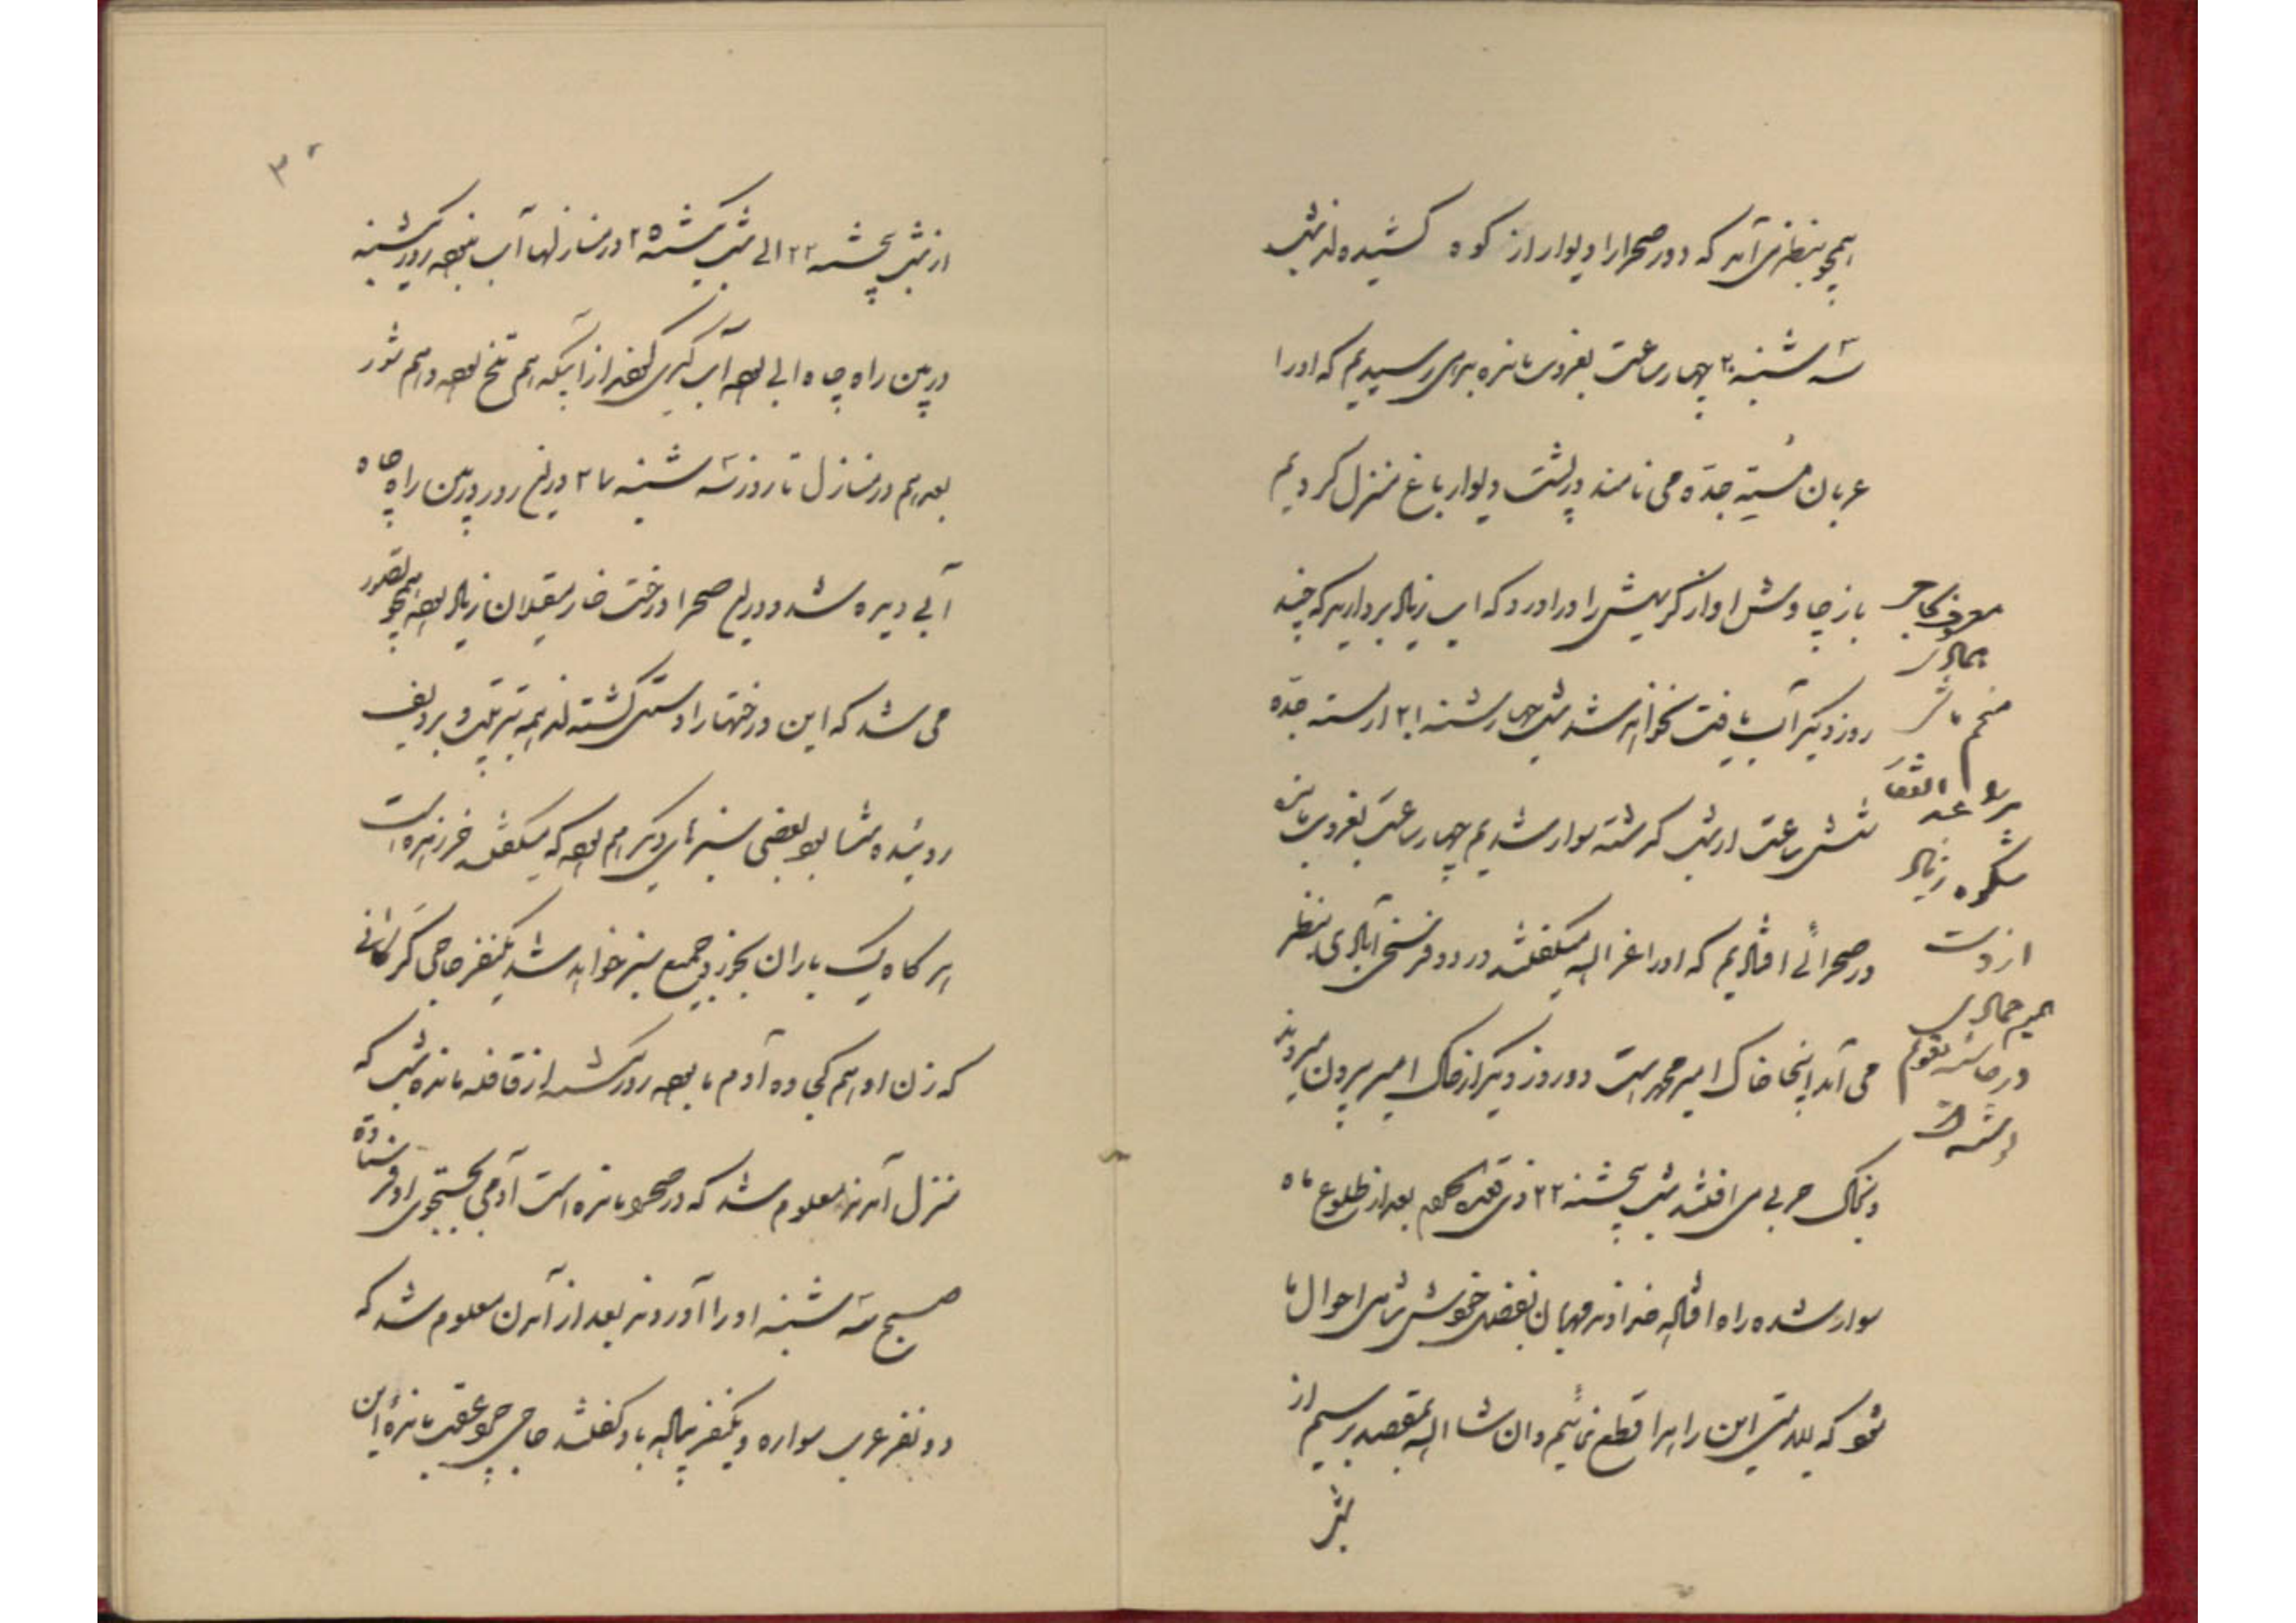 همچو بنظر می آید که دور صحرا را دیوار از کوه کشیده اند شب
سه شنبه ۲۰ چهار ساعت بغروب مانده بدهی رسیدیم که او را
عربان مستجده می نامند در پشت دیوار باغ منزل کردیم
باز چاوش اواز کریهش را در اورد که اب زیاد بردارید که چند
روز دیگر آب یافت نخواهد شد شب چهارشنبه ۲۱ از مستجده
شش ساعت از شب گذشته سوار شدیم چهار ساعت بغروب مانده
در صحرائی افتادیم که او را غزاله میگفتند در دو فرسخی آبادی بنظر
می آمد اینجا خاک امیر محمد است دو روز دیگر از خاک امیر بیرون میروند
و بخاک حربی می افتند شب پنجشنبه ۲۲ ذی قعده بعد از طلوع ماه
سوار شده راه افتاده خداوند مهربان بفضل خویش شامل احوال ما
شود که بسلامتی این راه را قطع نمائیم و ان شا الله بمقصد برسیم از
معروف بحاجی
منجم باشی
شکوه زیاد
از دست
در حاشیه تقویم
از شب پنجشنبه ۲۲ الی شب یکشنبه ۲۵ در منازلها آب نبود روز یکشنبه
در بین راه چاه ابی بود آب گیری کردند از آنیکه هم تلخ بود و هم شور
بعد هم در منازل تا روز سه شنبه ۲۷ در این روز در بین راه چاه
آبی دیده شد و در این صحرا درخت خار مغیلان زیاد بود همچو تصور
می شد که این درختها را دستی کشته اند همه بترتیب و بردیف
روئیده شما بود بعضی سبزهای دیگر هم بود که میگفتند خرزهره است
هر گاه یک باران بخورد جمیع سبز خواهد شد یکنفر حاجی کر کاشانی
که زن او هم کجاوه آدم ما بود روز یکشنبه از قافله مانده شب که
منزل آمدند معلوم شد که در صحرا مانده است آدمی بجستجوی او فرستاده
صبح سه شنبه او را آوردند بعد از آمدن معلوم شد که
دو نفر عرب سواره و یکنفر پیاده باو گفتند حاجی چرا عقب مانده این